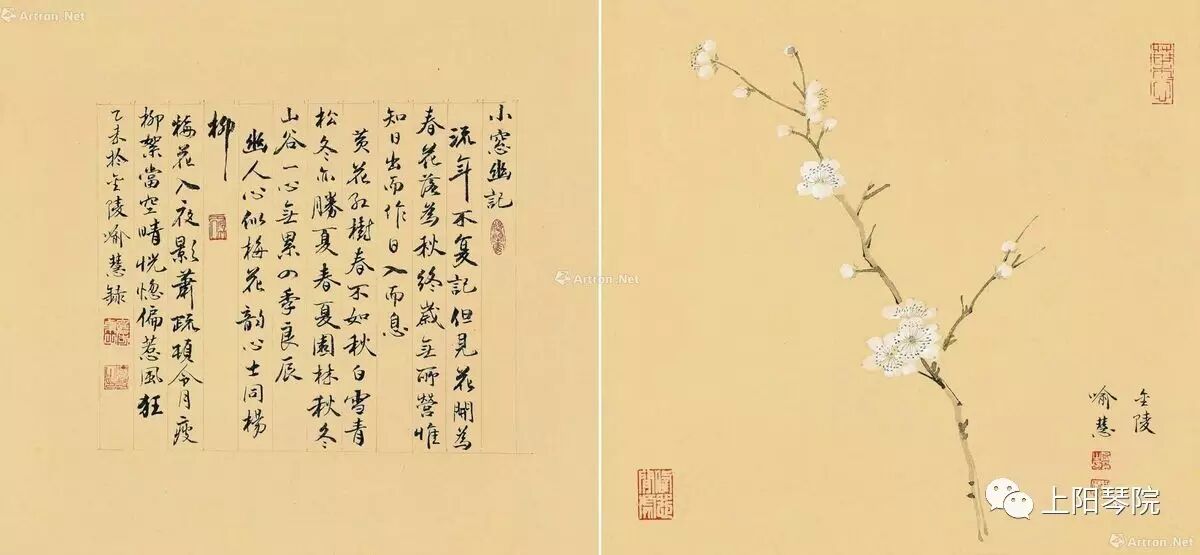 Artron.Net
小窓幽記
流年不复記但見花開為
春花落為秋終歲無所營惟
知日出而作日入而息
黄花紅樹春不如秋白雪青
松冬亦勝夏春夏園林秋冬
山谷一心無累四季良辰
幽人心似梅花韵心士同楊
柳
梅花入夜影蕭疏頓令月瘦
柳絮當空晴恍惚偏惹風狂
乙未於金陵喻慧録
Artron.Net
金陵
喻慧
上阳琴院
Artron.Net